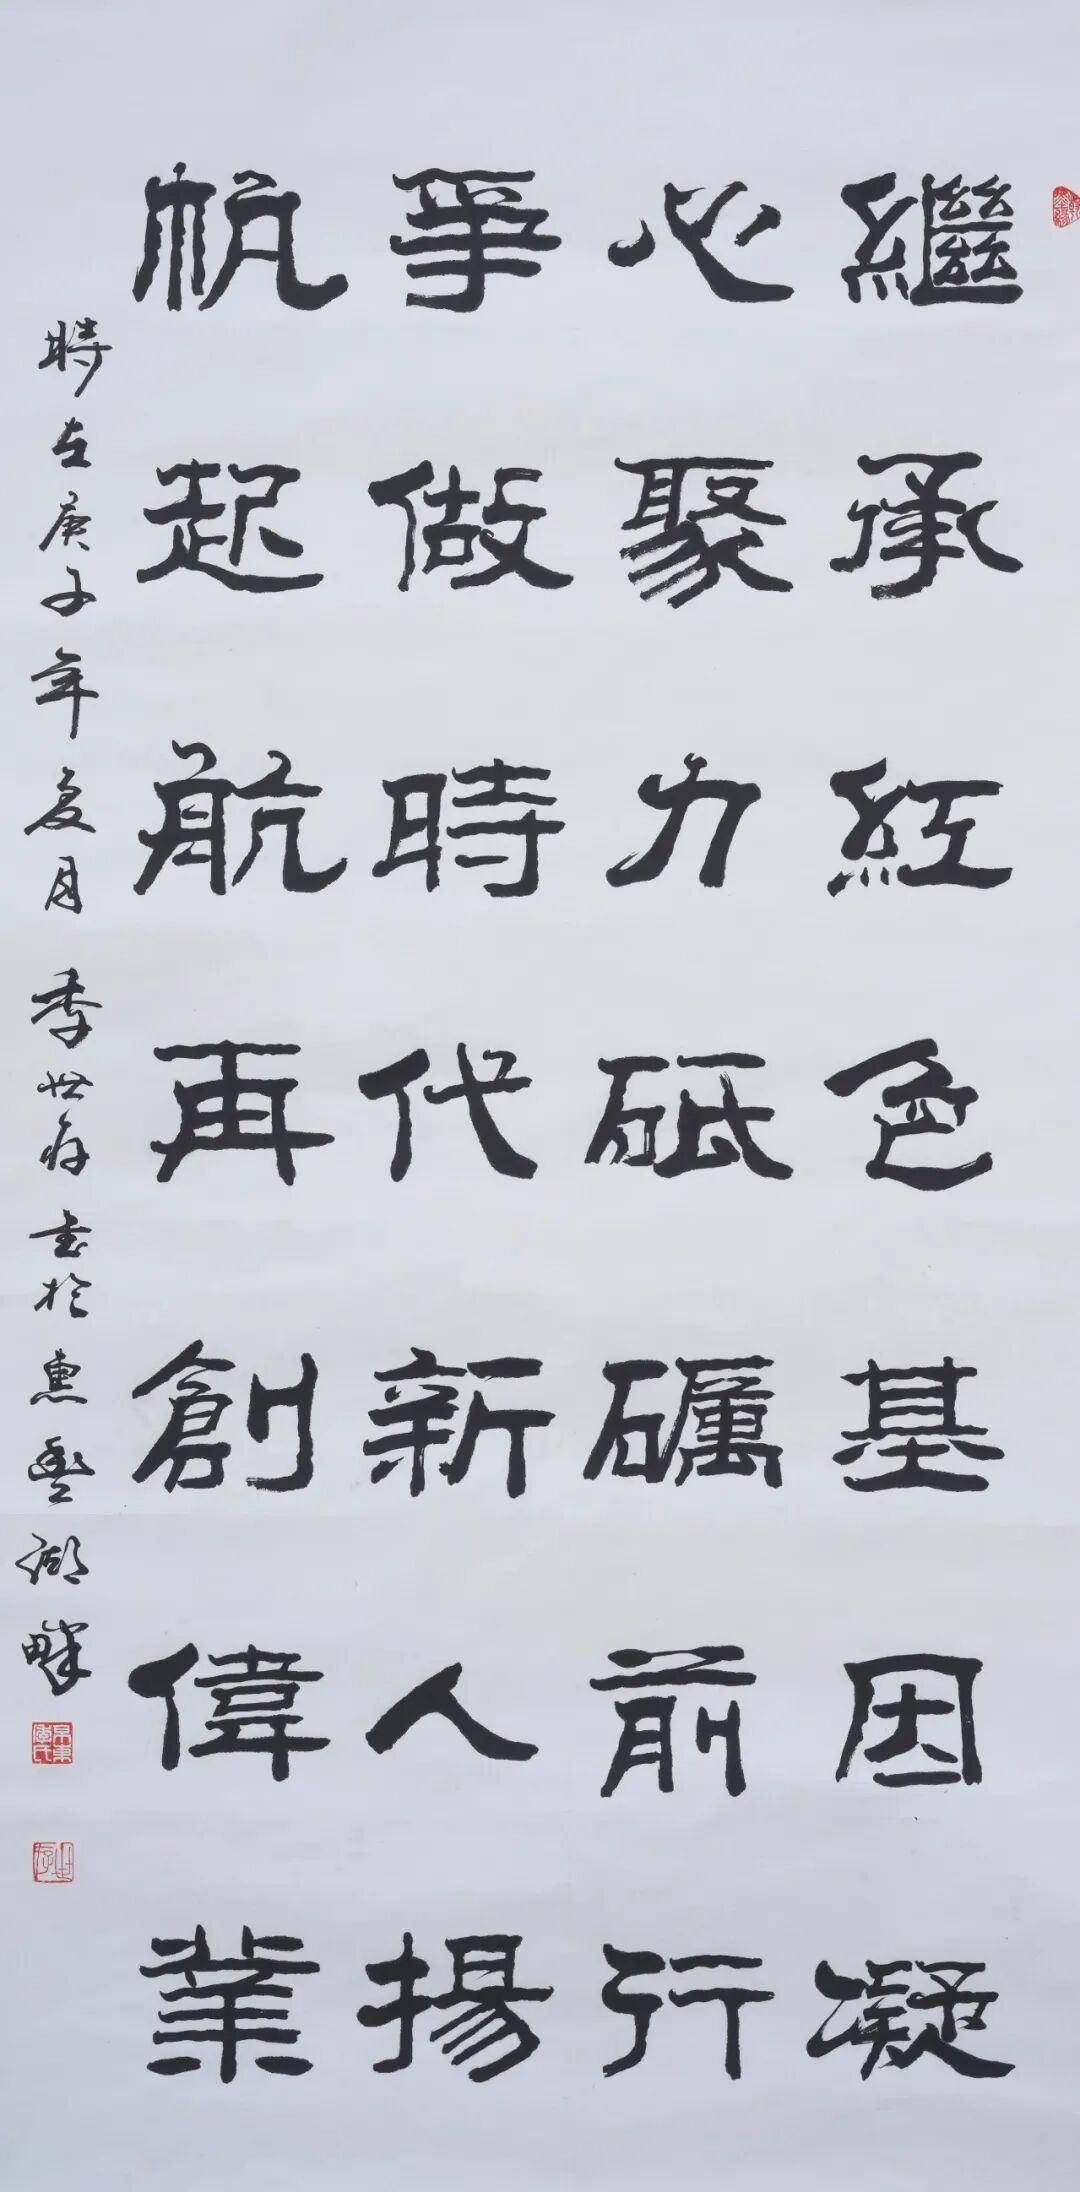 繼承紅色基因凝
心聚力砥礪前行
爭做時代新人揚
帆起航再創偉業
時在庚子年夏月季世存書於惠豐湖畔